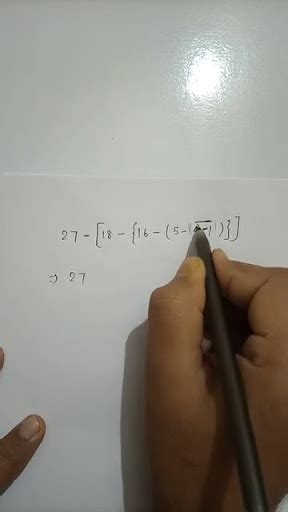 27 - [18 - {16 - (5 - | -1|)}]
⇒ 27